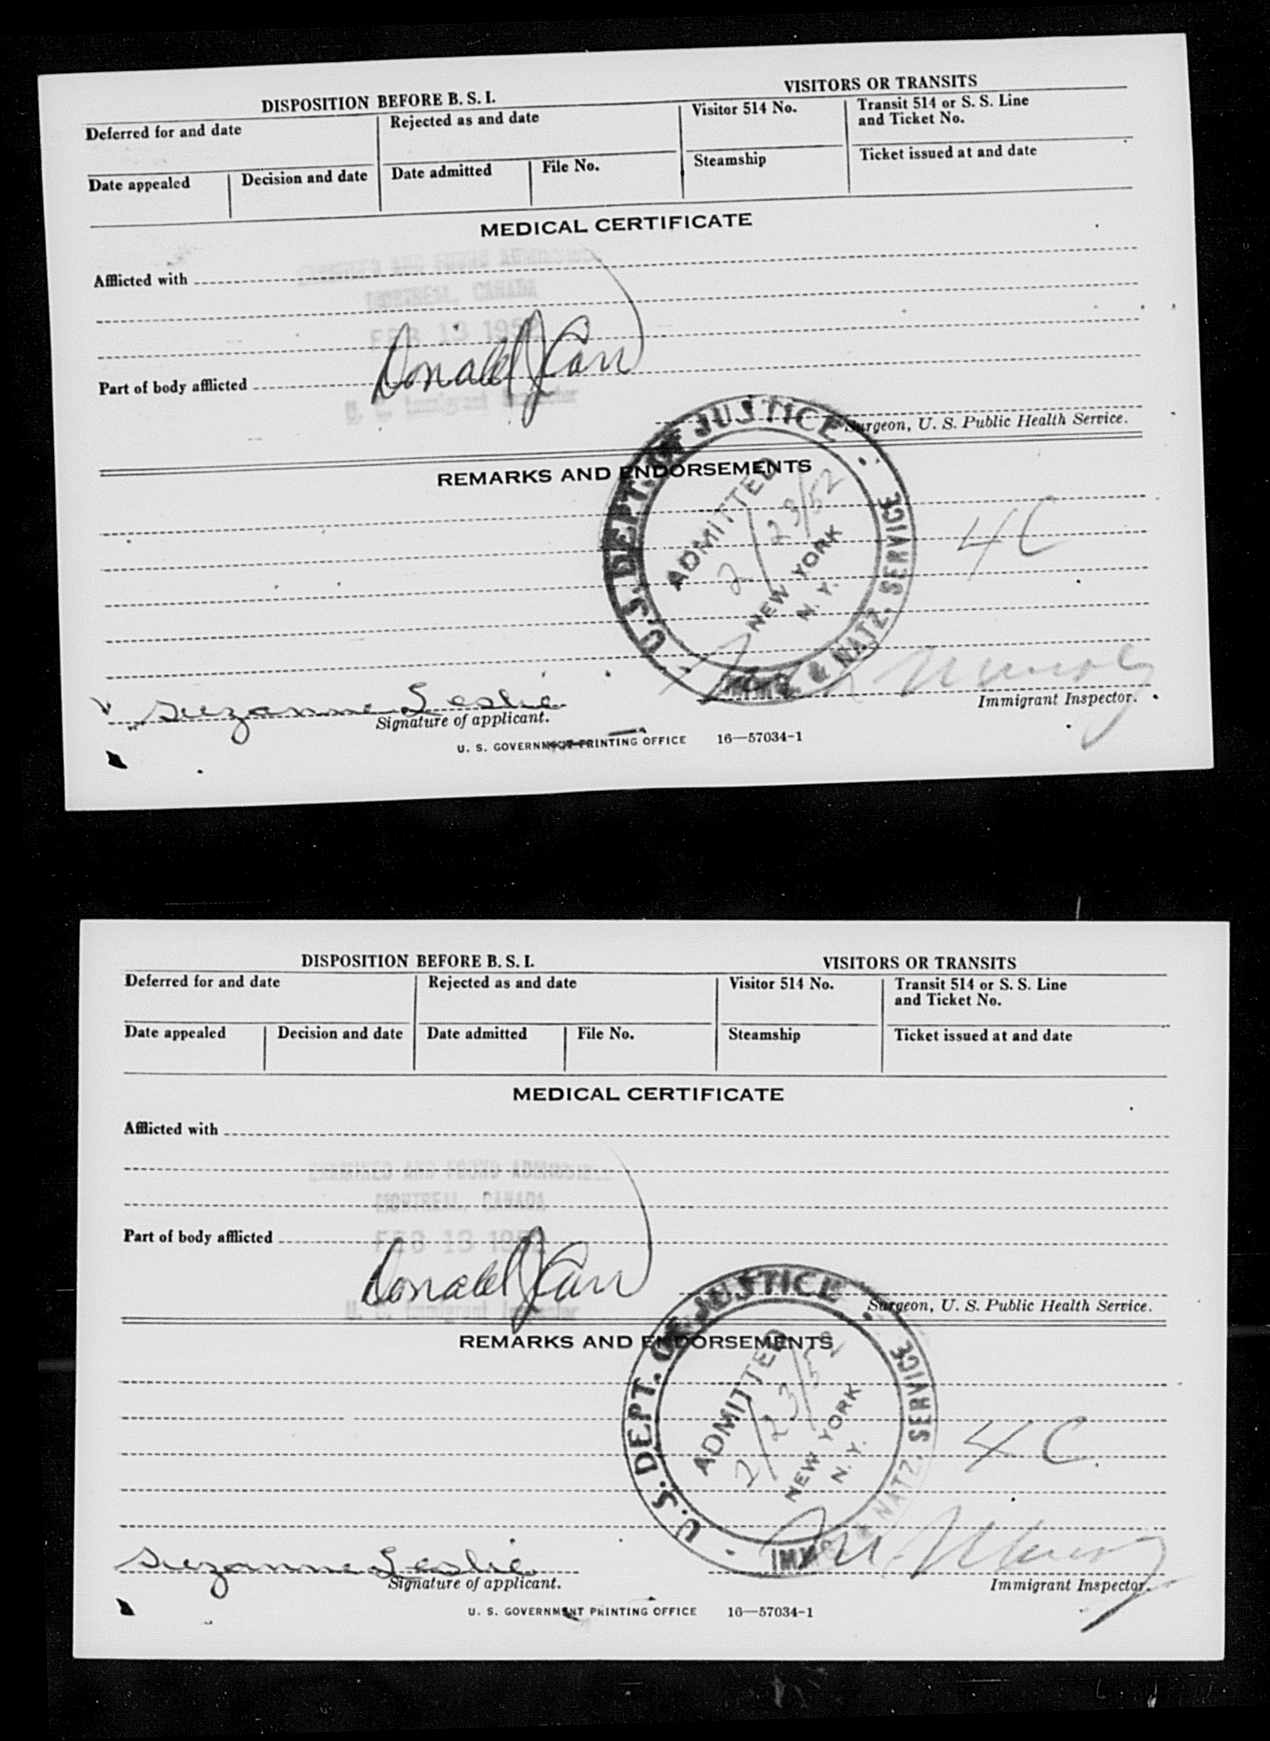 DISPOSITION BEFORE B. S. I.
VISITORS OR TRANSITS
Deferred for and date
Rejected as and date
Visitor 514 No.
Transit 514 or S. S. Line
and Ticket No.
Date appealed
Decision and date
Date admitted
File No.
Steamship
Ticket issued at and date
MEDICAL CERTIFICATE
Afflicted with
EXAMINED AND FOUND ADMISSIBLE
MONTREAL, CANADA
FEB 13 1952
Part of body afflicted
Donald J Carr
U. S. Immigrant Inspector
Surgeon, U. S. Public Health Service.
REMARKS AND ENDORSEMENTS
U.S. DEPT. OF JUSTICE
IMMG. & NATZ. SERVICE
ADMITTED
2/23/52
NEW YORK
N. Y.
4C
Suzanne Leslie
Signature of applicant.
Immigrant Inspector.
U. S. GOVERNMENT PRINTING OFFICE 16—57034-1
DISPOSITION BEFORE B. S. I.
VISITORS OR TRANSITS
Deferred for and date
Rejected as and date
Visitor 514 No.
Transit 514 or S. S. Line
and Ticket No.
Date appealed
Decision and date
Date admitted
File No.
Steamship
Ticket issued at and date
MEDICAL CERTIFICATE
Afflicted with
EXAMINED AND FOUND ADMISSIBLE
MONTREAL, CANADA
Part of body afflicted
FEB 13 1952
Donald J Carr
U. S. Immigrant Inspector
Surgeon, U. S. Public Health Service.
REMARKS AND ENDORSEMENTS
U.S. DEPT. OF JUSTICE
IMMG. & NATZ. SERVICE
ADMITTED
2/23/52
NEW YORK
N. Y.
4C.
Suzanne Leslie
Signature of applicant.
Immigrant Inspector.
U. S. GOVERNMENT PRINTING OFFICE 16—57034-1